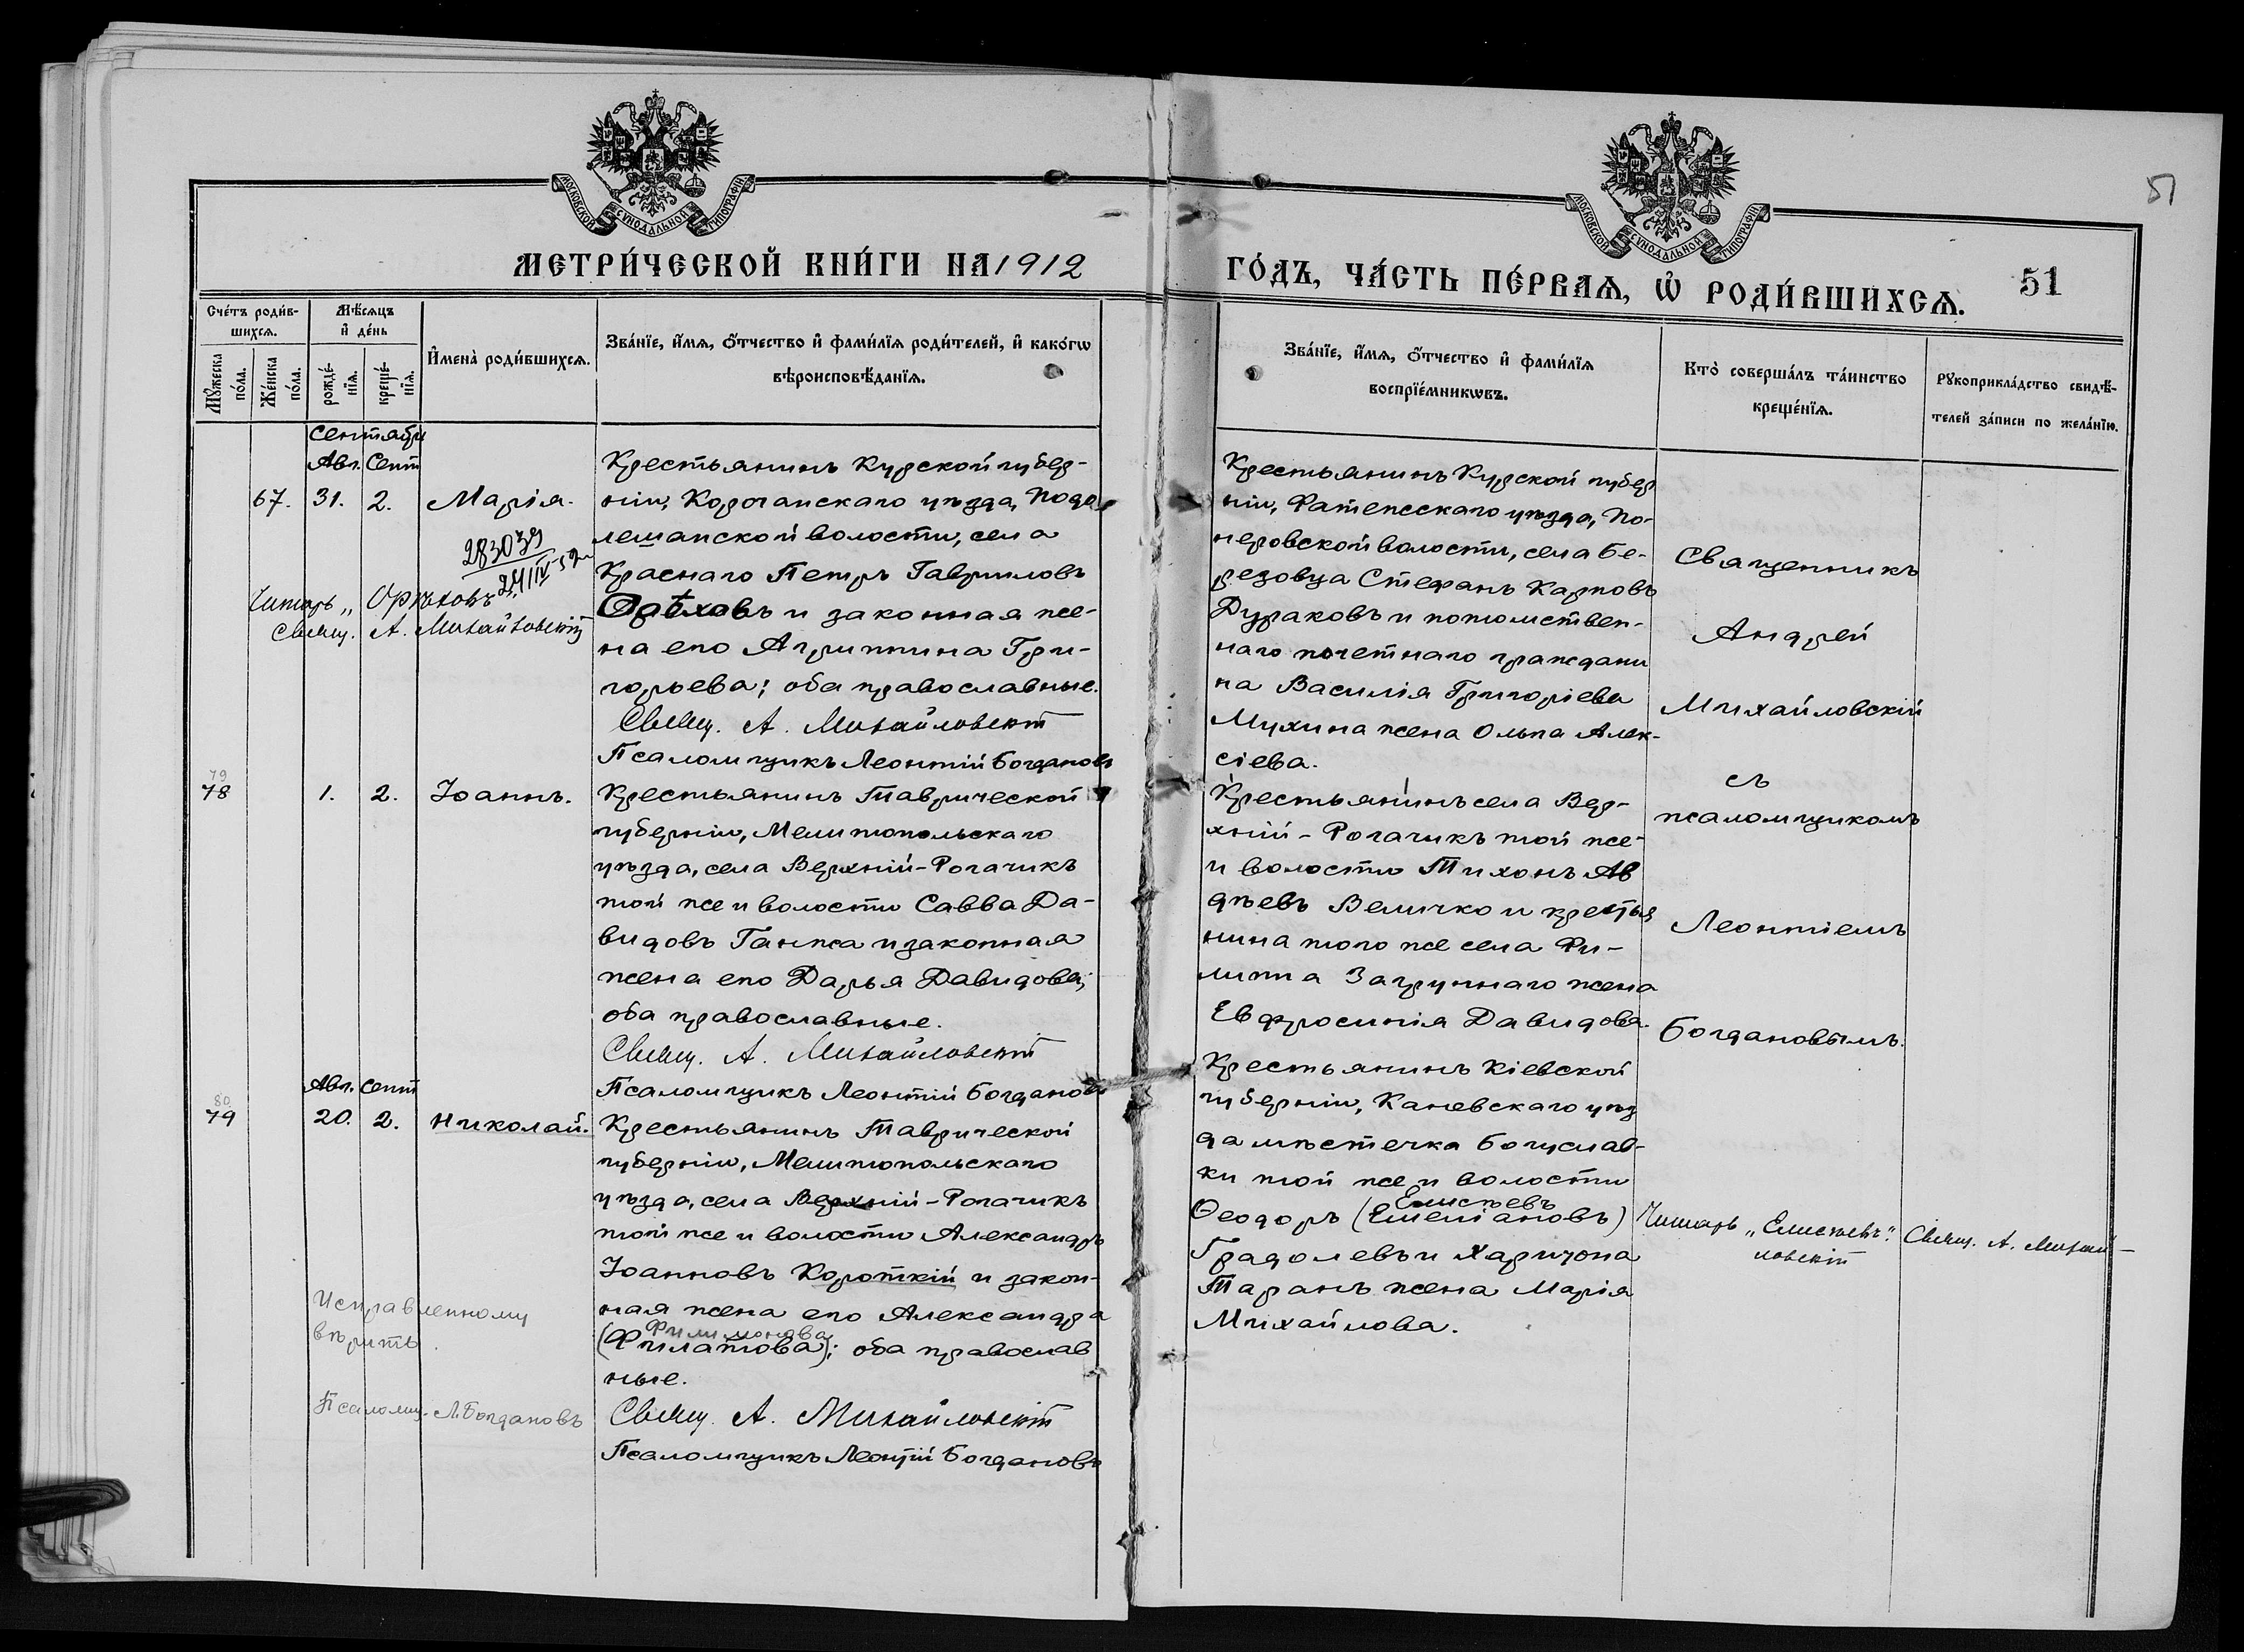 51
МОСКОВСКОЙ СѴНОДАЛЬНОЙ ТИПОГРАФІИ
МОСКОВСКОЙ СѴНОДАЛЬНОЙ ТИПОГРАФІИ
МЕТРИ́ЧЕСКОЙ КНИ́ГИ НА 1912
ГО́ДЪ, ЧА́СТЬ ПЕ́РВАѦ, Ѡ҆ РОДИ́ВШИХСѦ. 51
Сче́тъ роди́в-
шихсѧ.
Мꙋ́жеска
по́ла.
Же́нска
по́ла.
Мѣ́сѧцъ
и҆ де́нь
рожде́-
нїѧ.
креще́-
нїѧ.
И҆мена̀ роди́вшихсѧ.
Зва́нїе, и҆́мѧ, ѻ҆́тчество и҆ фами́лїѧ роди́телей, и҆ како́гѡ
вѣроисповѣ́данїѧ.
Зва́нїе, и҆́мѧ, ѻ҆́тчество и҆ фами́лїѧ
воспрїе́мникѡвъ.
Кто̀ соверша́лъ та́инство
креще́нїѧ.
Рꙋкоприкла́дство свидѣ́-
телей за́писи по жела́нїю.
Сентябри
Авг. Сент
67. 31. 2. Марія.
283039
24/IV-59г
Читать „Орѣховъ"
Свящ. А. Михайловскій
Крестьянинъ Курской губер-
ніи, Корочанскаго уѣзда, Подо
лешанской волости, села
Краснаго Петръ Гавриловъ
Орѣховъ и законная же-
на его Агриппина Гри-
горьева; оба православные.
Свящ. А. Михайловскій
Псаломщикъ Леонтій Богдановъ
Крестьянинъ Курской губер
ніи, Фатежскаго уѣзда, По-
неровской волости, села Бе-
резовца Стефанъ Карповъ
Дураковъ и потомствен-
наго почетнаго граждани
на Василія Григоріева
Мухина жена Ольга Алек-
сіева.
Священникъ
Андрей
Михайловскій
съ
псаломщикомъ
Леонтіемъ
Богдановымъ.
79
78 1. 2. Іоаннъ.
Крестьянинъ Таврической
губерніи, Мелитопольскаго
уѣзда, села Верхній-Рогачикъ
той же и волости Савва Да-
видовъ Ганжа и законная
жена его Дарья Давидова;
оба православные.
Свящ. А. Михайловскій
Псаломщикъ Леонтій Богдановъ
Крестьянинъ села Вер-
хній-Рогачикъ той же-
и волости Тихонъ Ав
дѣевъ Величко и крестья
нина того же села Фи-
липпа Загрунаго жена
Евфросинія Давидова.
Авг. Сент
80
79 20. 2. Николай.
Крестьянинъ Таврической
губерніи, Мелитопольскаго
уѣзда, села Верхній-Рогачикъ
той же и волости Александръ
Іоанновъ Короткій и закон-
ная жена его Александра
Филимонова
(Филатова); оба православ
ные.
Свящ. А. Михайловскій
Псаломщикъ Леонтій Богдановъ
Исправленному
вѣрить.
Псаломщ. Л. Богдановъ
Крестьянинъ Кіевской
губерніи, Каневскаго уѣз
да мѣстечка Богуслав-
ки той же и волости
Елисѣевъ
Ѳеодоръ (Емеліановъ)
Градолевъ и Харитона
Таранъ жена Марія
Михайлова.
Читать „Елисѣевъ". Свящ. А. Михай-
ловскій